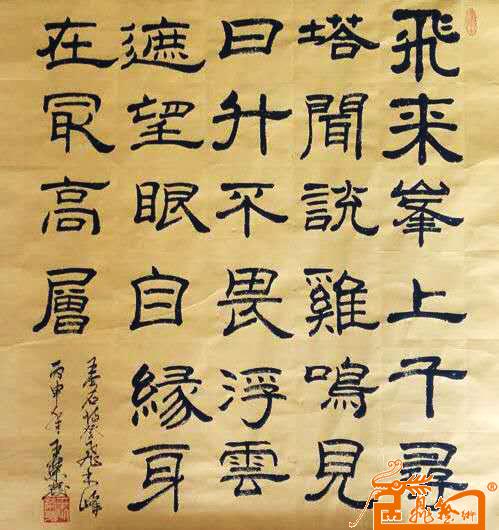 飛来峯上千尋
塔聞説雞鳴見
日升不畏浮雲
遮望眼自緣身
在冣高層
飛来峰
丙申年王